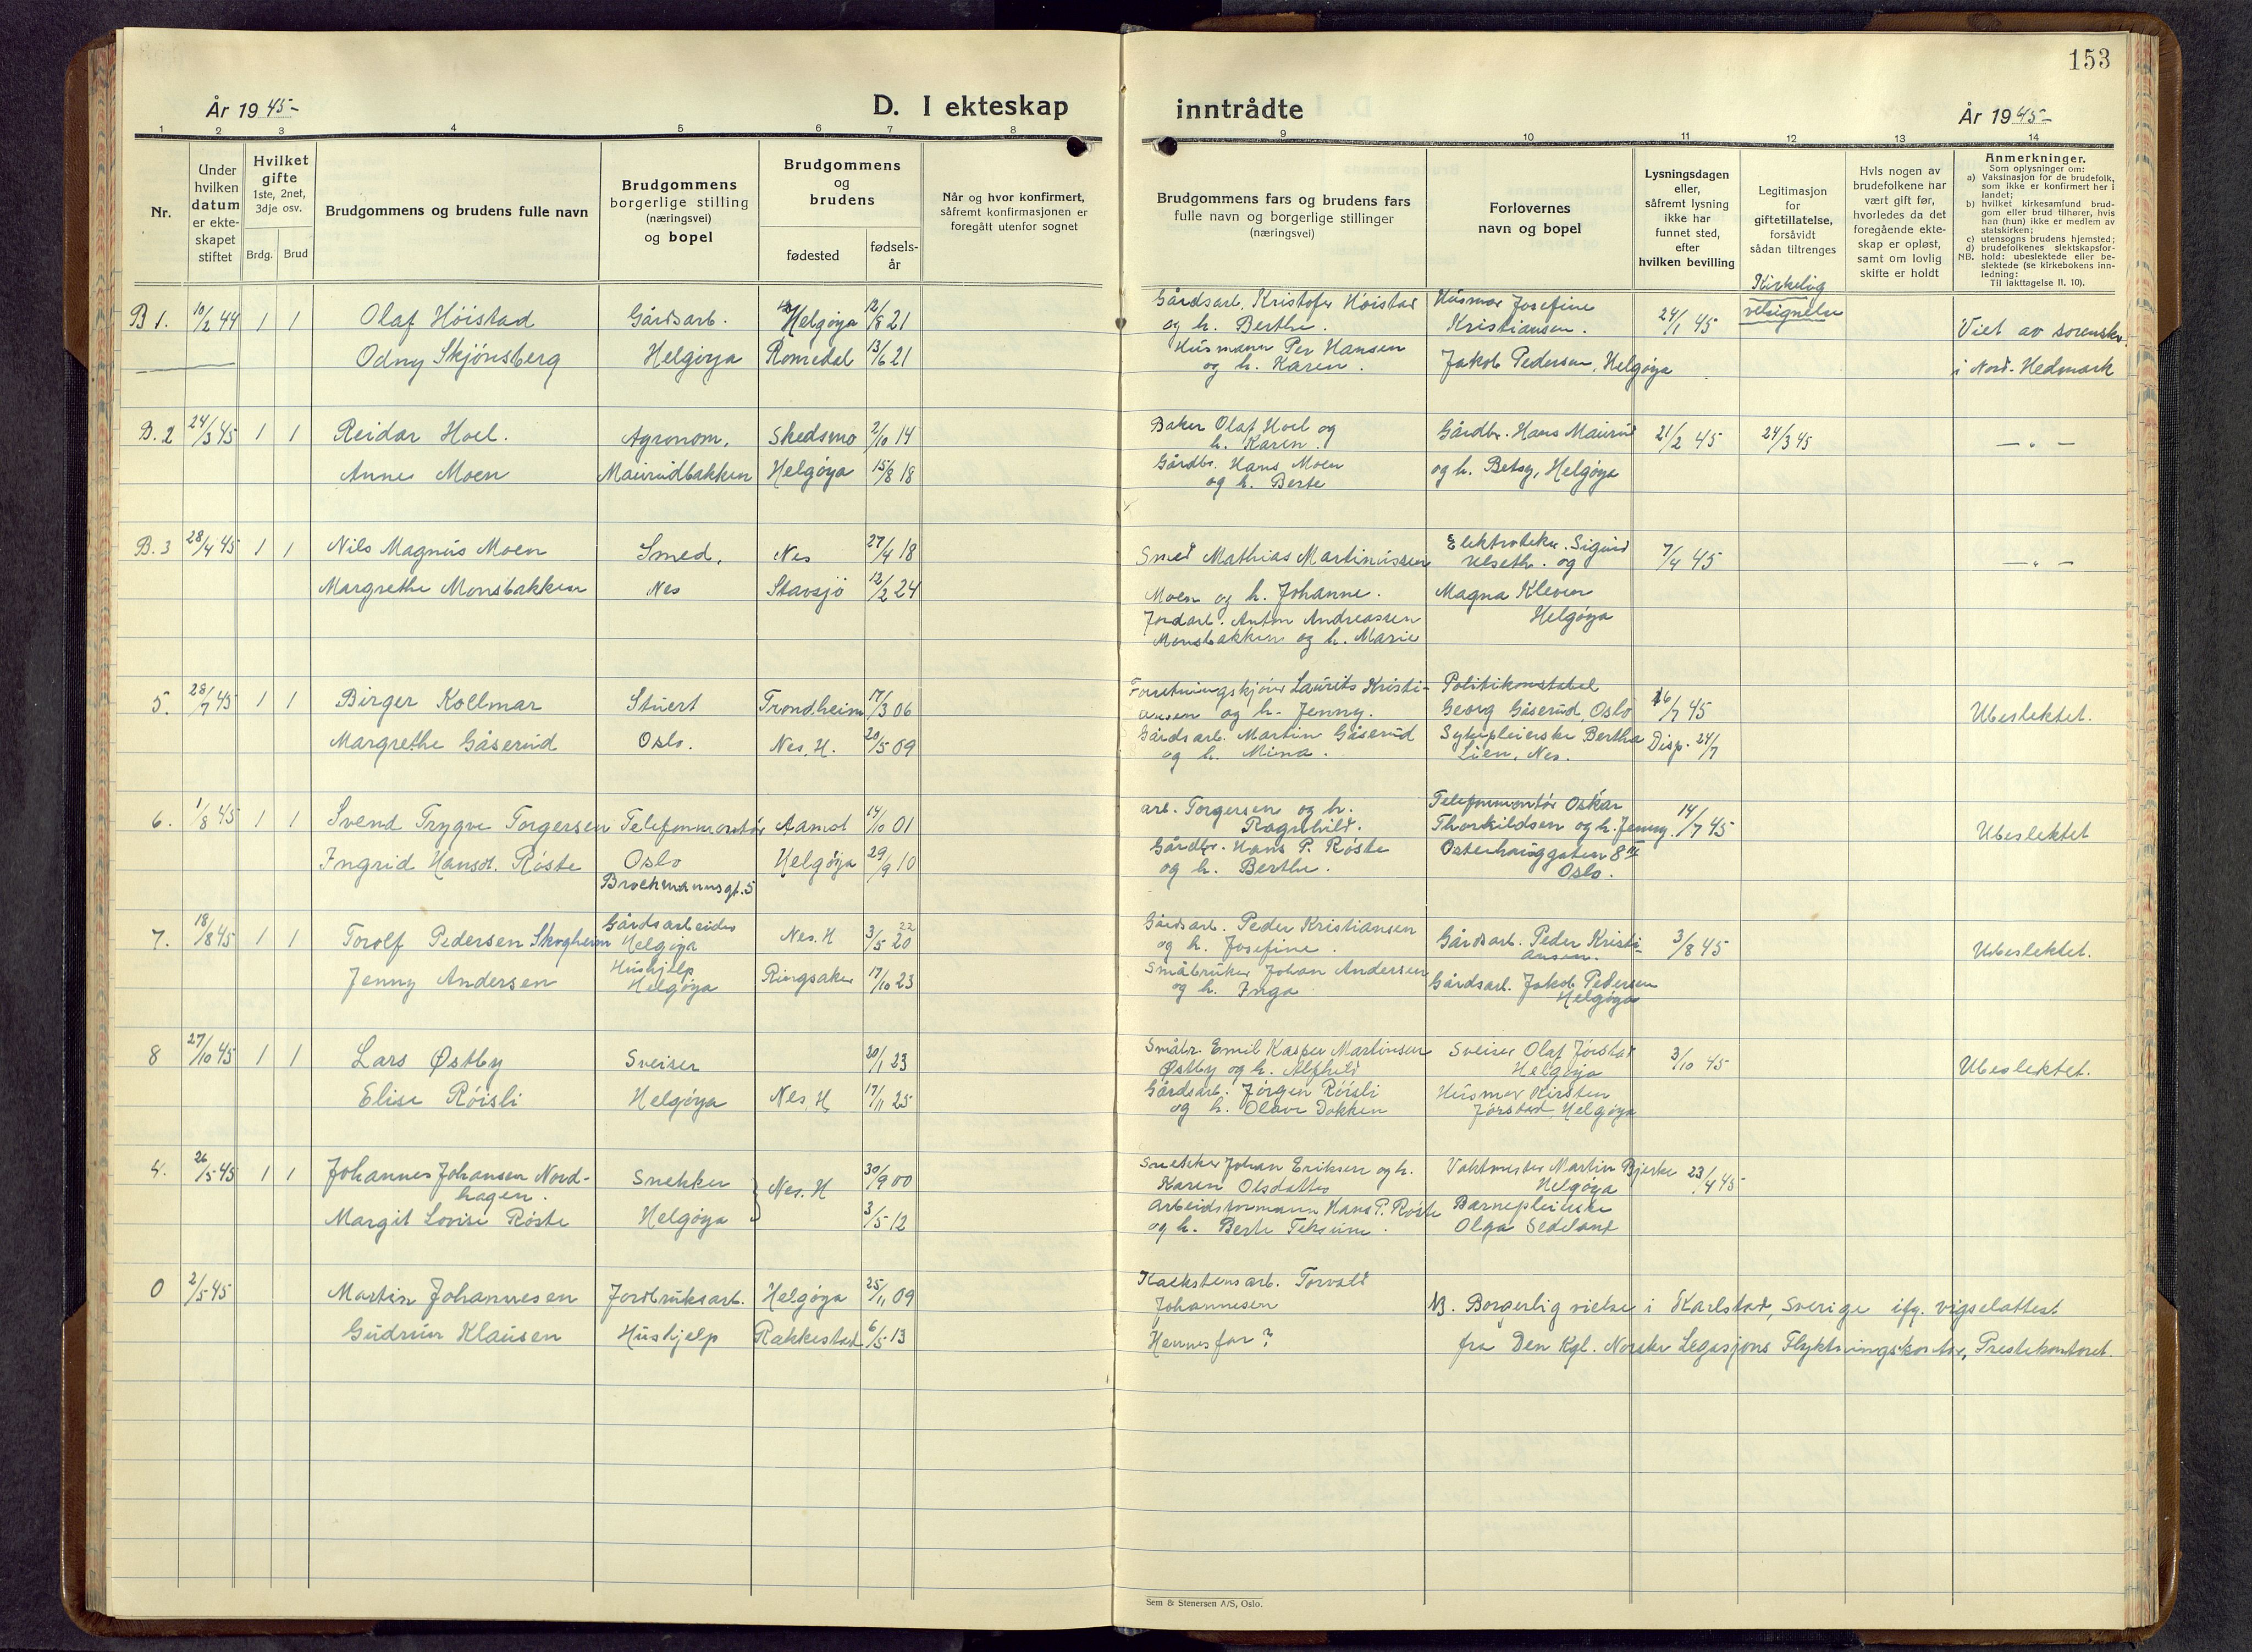 153
År 1945-
D. I ekteskap
inntrådte
År 1945-
1 2 3 4 5 6 7 8 9 10 11 12 13 14
Nr.
Under hvilken datum er ekte-skapet stiftet
Hvilket gifte 1ste, 2net, 3dje osv.
Brdg. Brud
Brudgommens og brudens fulle navn
Brudgommens borgerlige stilling (næringsvei) og bopel
Brudgommens og brudens
fødested
fødsels-år
Når og hvor konfirmert, såfremt konfirmasjonen er foregått utenfor sognet
Brudgommens fars og brudens fars fulle navn og borgerlige stillinger (næringsvei)
Forlovernes navn og bopel
Lysningsdagen eller, såfremt lysning ikke har funnet sted, efter hvilken bevilling
Legitimasjon for giftetillatelse, forsåvidt sådan tiltrenges
Hvis nogen av brudefolkene har vært gift før, hvorledes da det foregående ekte-skap er opløst, samt om lovlig skifte er holdt
Anmerkninger.
Som oplysninger om:
a) Vaksinasjon for de brudefolk, som ikke er konfirmert her i landet;
b) hvilket kirkesamfund brud-gom eller brud tilhører, hvis han (hun) ikke er medlem av statskirken;
c) utensogns brudens hjemsted;
d) brudefolkenes slektskapsfor-hold: ubeslektede eller be-slektede (se kirkebokens inn-ledning:
NB. Til iakttagelse II. 10).
Kirkelig
velsignelse
B 1. 10/2 44 1 1 Olaf Höistad Gårdsarb. Helgøya 12/8 21
Odny Skjönsberg Helgöya Romedal 13/6 21
Gårdsarb. Kristofer Höistad
og h. Berthe.
Husmann Per Hansen
og h. Karen.
Husmor Josefine
Kristiansen.
Jakob Pedersen, Helgøya
24/1 45
Viet av sorenskr.
i Nord-Hedmark
B. 2 24/3 45 1 1 Reidar Hoel. Agronom. Skedsmo 2/10 14
Anne Moen Maurudbakken Helgøya 15/8 18
Baker Olaf Hoel og
h. Karen.
Gårdbr. Hans Moen
og h. Berte
Gårdbr. Hans Maurud
og h. Betsy, Helgøya
21/2 45 24/3 45
— " —
B. 3 28/4 45 1 1 Nils Magnus Moen Smed. Nes 27/4 18
Margrethe Monsbakken Nes Stavsjö 12/2 24
Smed Mathias Martinussen
Moen og h. Johanne.
Jordarb. Anton Andreassen
Monsbakken og h. Marie
Elektrotekn. Sigurd
Ulseth. og
Magna Kleven
Helgøya
7/4 45
— " —
5. 28/7 45 1 1 Birger Kollmar Stuert Trondheim 17/3 06
Margrethe Gåserud Oslo. Nes. H. 20/5 09
Forretningskjörer Laurits Kristi-
ansen og h. Jenny.
Gårdsarb. Martin Gåserud
og h. Mina.
Politikonstabel
Georg Gåserud, Oslo
Sykepleierske Bertha
Lien, Nes.
16/7 45
Disp. 24/7
Ubeslektet.
6. 1/8 45 1 1 Svend Trygve Torgersen Telefonmontör Aamot 14/10 01
Ingrid Hansd. Röste Oslo Helgöya 29/9 10
Brochmannsgt. 5
arb. Torgersen og h.
Ragnhild.
Gårdbr. Hans P. Röste
og h. Berthe.
Telefonmontör Oskar
Thorkildsen og h. Jenny.
Osterhausgaten 8 III
Oslo.
14/7 45
Ubeslektet
7. 18/8 45 1 1 Torolf Pedersen Skogheim Gårdsarbeider Helgöya Nes. H 3/5 20 22
Jenny Andersen Hushjelp Helgøya Ringsaker 17/10 23
Gårdsarb. Peder Kristiansen
og h. Josefine.
Småbruker Johan Andersen
og h. Inga
Gårdsarb. Peder Kristi-
ansen.
Gårdsarb. Jakob Pedersen
Helgøya
3/8 45
Ubeslektet.
8 27/10 45 1 1 Lars Østby Sveiser 20/1 23
Elise Röisli Helgøya Nes, H 17/11 25
Småbr. Emil Kasper Martinsen
Østby og h. Alfhild
Gårdsarb. Jörgen Röisli
og h. Olava Dokken
Sveiser Olaf Jörstad
Helgöya
Husmor Kirsten
Jörstad, Helgøya
3/10 45
Ubeslektet.
4. 26/5 45 1 1 Johannes Johansen Nord-
hagen. Snekker Nes. H 30/9 00
Margit Lovise Röste Helgøya 3/5 12
Snekker Johan Eriksen og h.
Karen Olsdatter
Arbeidsformann Hans P. Röste
og h. Berte Teksum.
Vaktmester Martin Bjerke
Helgøya
Barnepleierske
Olga Sedeland
23/4 45
0 2/5 45 Martin Johannesen Jordbruksarb. Helgøya 25/11 09
Gudrun Klausen Hushjelp Rakkestad 6/5 13
Kalkstensarb. Torvald
Johannesen
Hennes far?
B. Borgerlig vielse i Karlstad, Sverige ifg. vigselattest
fra Den Kgl. Norske Legasjons Flyktningskontor, Prestekontoret.
Sem & Stenersen A/S, Oslo.